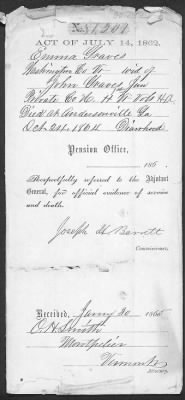 ACT OF JULY 14, 1862.
Emma Graves
Washington Co Vt wid of
John Graves
Private Co H.
Died at Andersonville Ga
Oct. 21st 1864
Pension Office,
186 .
Respectfully referred to the Adjutant
General, for official evidence of service
and death.
Joseph H Barrett
Commissioner.
Received, Jany 20 1865
O H Smith
Montpelier
Vermont
Attorney.